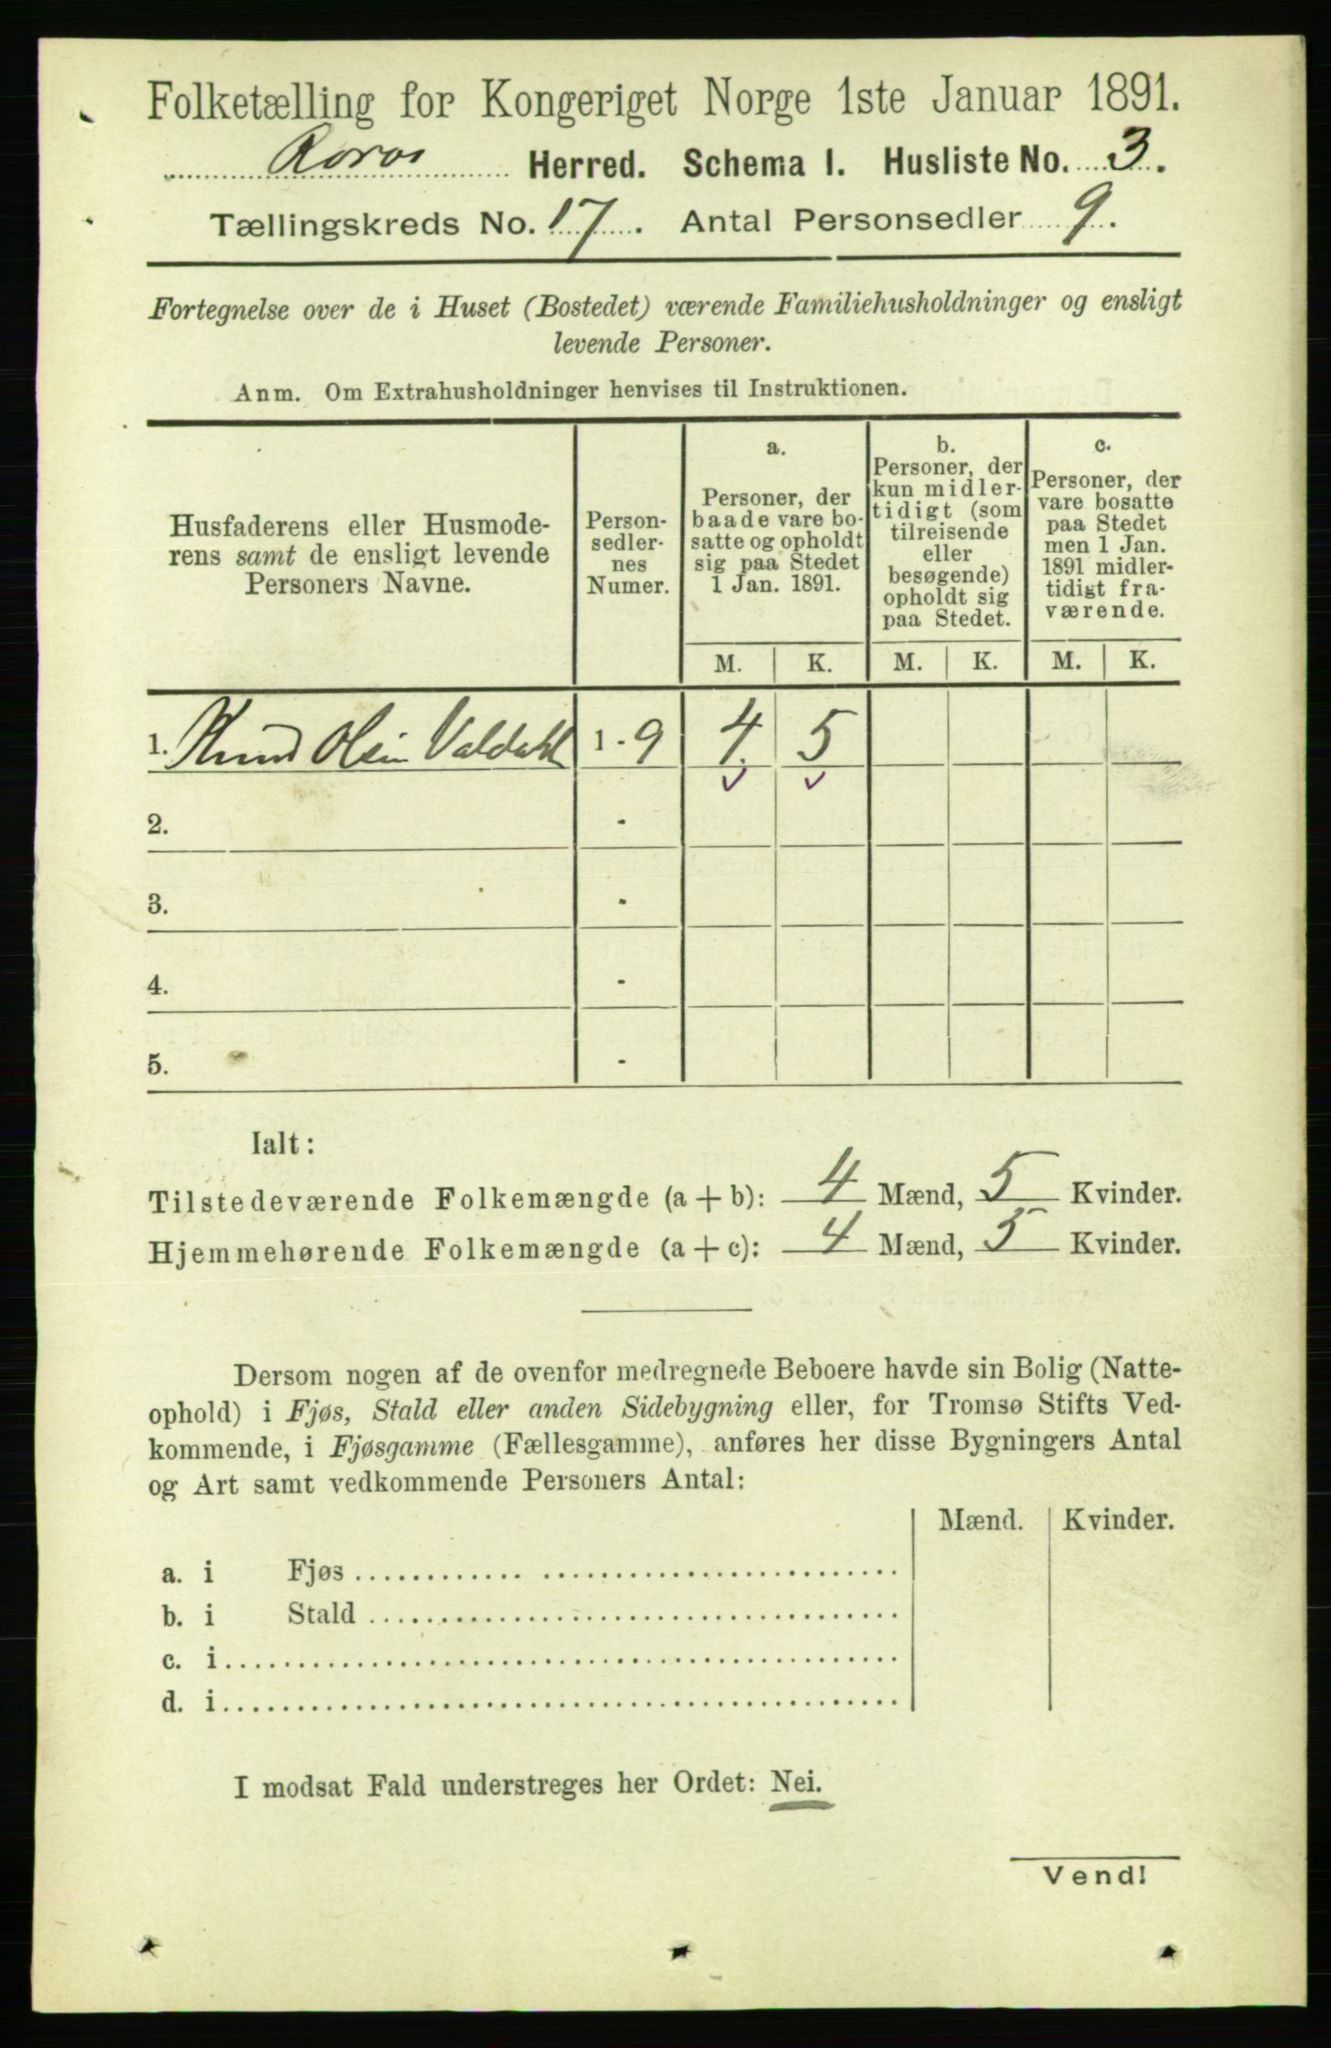 Folketælling for Kongeriget Norge 1ste Januar 1891.
Røros Herred. Schema I. Husliste No. 3.
Tællingskreds No. 17. Antal Personsedler 9.
Fortegnelse over de i Huset (Bostedet) værende Familiehusholdninger og ensligt
levende Personer.
Anm. Om Extrahusholdninger henvises til Instruktionen.
Husfaderens eller Husmode-
rens samt de ensligt levende
Personers Navne.
Person-
sedler-
nes
Numer.
a.
Personer, der
baade vare bo-
satte og opholdt
sig paa Stedet
1 Jan. 1891.
b.
Personer, der
kun midler-
tidigt (som
tilreisende
eller
besøgende)
opholdt sig
paa Stedet.
c.
Personer, der
vare bosatte
paa Stedet
men 1 Jan.
1891 midler-
tidigt fra-
værende.
M. K. M. K. M. K.
1. Knud Olsen Valdahl 1 - 9 4 5
2. -
3. -
4. -
5. -
Ialt:
Tilstedeværende Folkemængde (a + b): 4 Mænd, 5 Kvinder.
Hjemmehørende Folkemængde (a + c): 4 Mænd, 5 Kvinder.
Dersom nogen af de ovenfor medregnede Beboere havde sin Bolig (Natte-
ophold) i Fjøs, Stald eller anden Sidebygning eller, for Tromsø Stifts Ved-
kommende, i Fjøsgamme (Fællesgamme), anføres her disse Bygningers Antal
og Art samt vedkommende Personers Antal:
Mænd. Kvinder.
a. i Fjøs
b. i Stald
c. i
d. i
I modsat Fald understreges her Ordet: Nei.
Vend!